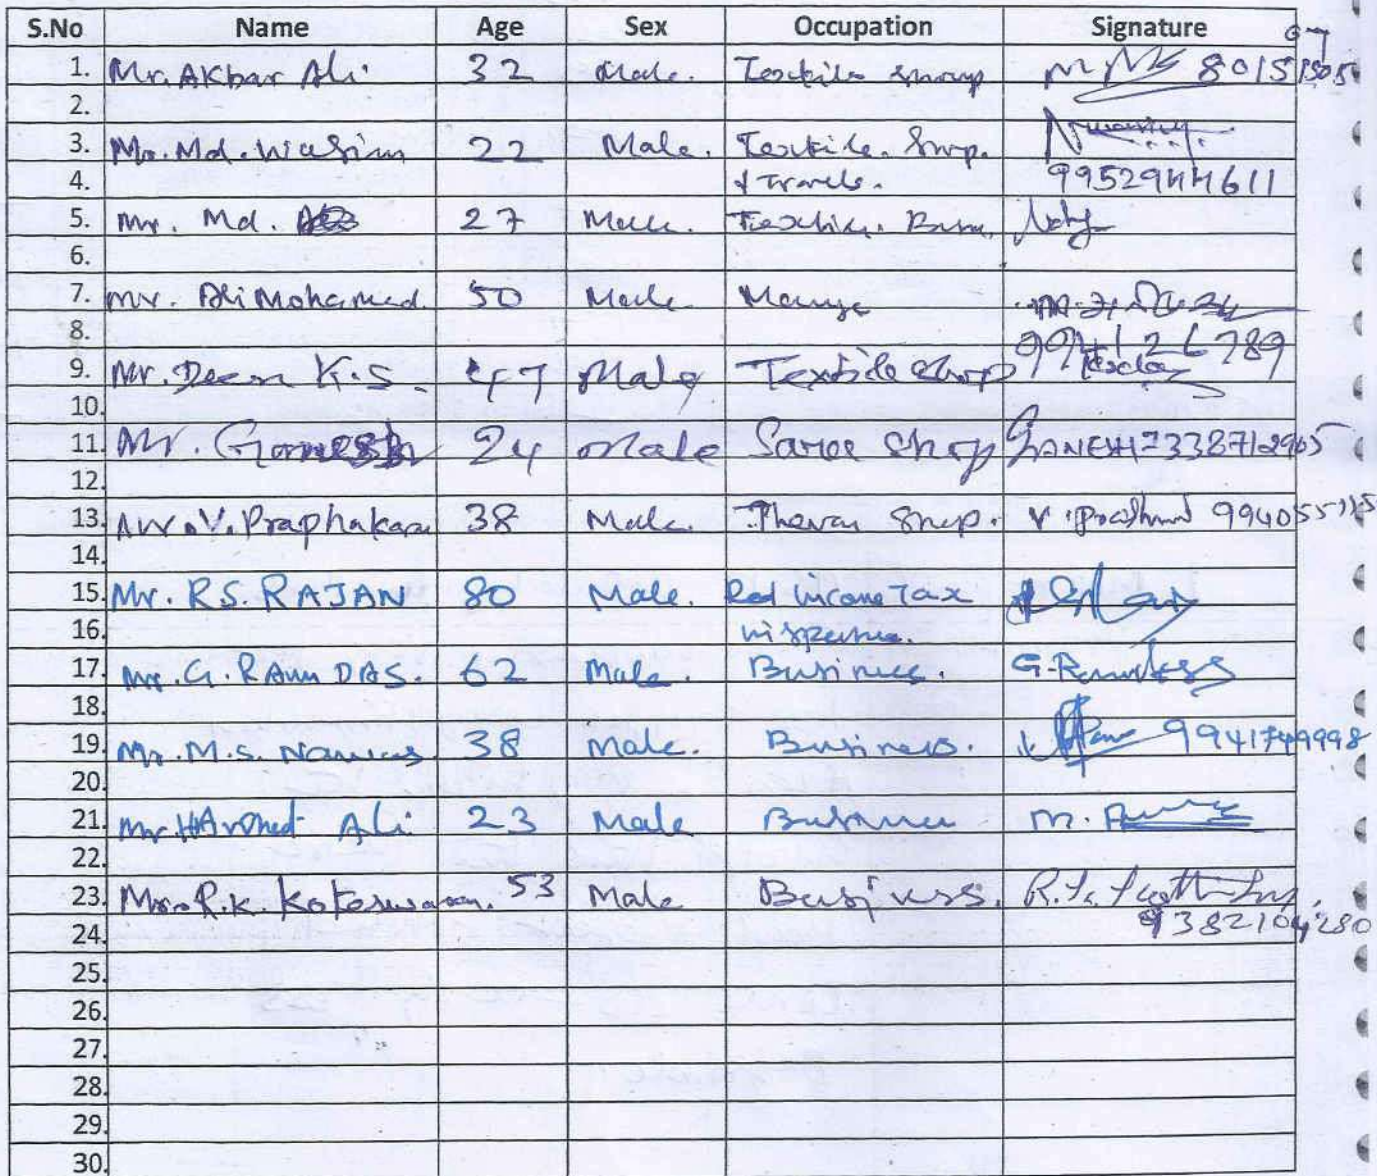 S.No Name Age Sex Occupation Signature
1. Mr. Akbar Ali 32 Male. Textile Shop 80151505
07
2.
3. Mr. Md. Wasim 22 Male. Textile. Shop.
4. & Travels. 9952944611
5. Mr. Md. 27 Male. Textile.
6.
7. Mr. Ali Mohamed. 50 Male
8.
9. Mr. Deen K.S. 47 Male Textile Shop
10.
11. Mr. Ganesh 24 Male Saree Shop GANESH 7338712905
12.
13. Mr. V. Praphakaran 38 Male. Shop.
14.
15. Mr. RS. RAJAN 80 Male. Red income Tax
16.
17. Mr. G. RAM DAS. 62 Male. Business. G. Ramdass
18.
19. Mr. M.S. Nawas. 38 Male. Business. 9941749998
20.
21. Mr. Ali 23 Male Business M.
22.
23. Mr. R.K. Koteswaran. 53 Male Business.
24. 9382104280
25.
26.
27.
28.
29.
30.